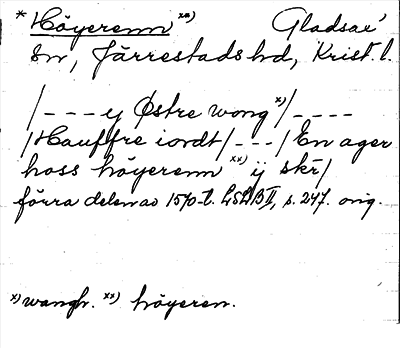 * Höyerenn xx) Gladsax'
sn, Järrestads hd, Krist. l.
/- - - ij Östre wong x)/- - - -
/Hauffre iordt/- - -/En ager
hoss höyerenn xx) ij skr/
förra delen av 1570-t. LSLB II, s. 247. orig.
x) wangh. xx) höyeren.